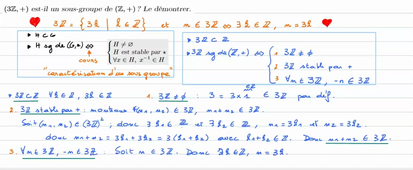 (3ℤ, +) est-il un sous-groupe de (ℤ, +) ? Le démontrer.
3ℤ = { 3k | k ∈ ℤ } et m ∈ 3ℤ ⇔ ∃ k ∈ ℤ, m = 3k
• H ⊂ G
• H sg de (G,*) ⇔
cours
H ≠ ∅
H est stable par *
∀x ∈ H, x⁻¹ ∈ H
"caractérisation d'un sous-groupe"
• 3ℤ ⊂ ℤ
• 3ℤ sg de (ℤ, +) ⇔
1 3ℤ ≠ ∅
2 3ℤ stable par +
3 ∀ m ∈ 3ℤ, -m ∈ 3ℤ
• 3ℤ ⊂ ℤ ∀ k ∈ ℤ, 3k ∈ ℤ
1. 3ℤ ≠ ∅ : 3 = 3×1 ∈ 3ℤ par déf.
∈ℤ
2. 3ℤ stable par + : montrons ∀(m₁, m₂) ∈ 3ℤ, m₁ + m₂ ∈ 3ℤ.
Soit (m₁, m₂) ∈ (3ℤ)², donc ∃ k₁ ∈ ℤ et ∃ k₂ ∈ ℤ, m₁ = 3k₁ et m₂ = 3k₂.
donc m₁ + m₂ = 3k₁ + 3k₂ = 3(k₁ + k₂) avec k₁ + k₂ ∈ ℤ. Donc m₁ + m₂ ∈ 3ℤ.
3. ∀ m ∈ 3ℤ, -m ∈ 3ℤ : Soit m ∈ 3ℤ. Donc ∃ k ∈ ℤ, m = 3k.